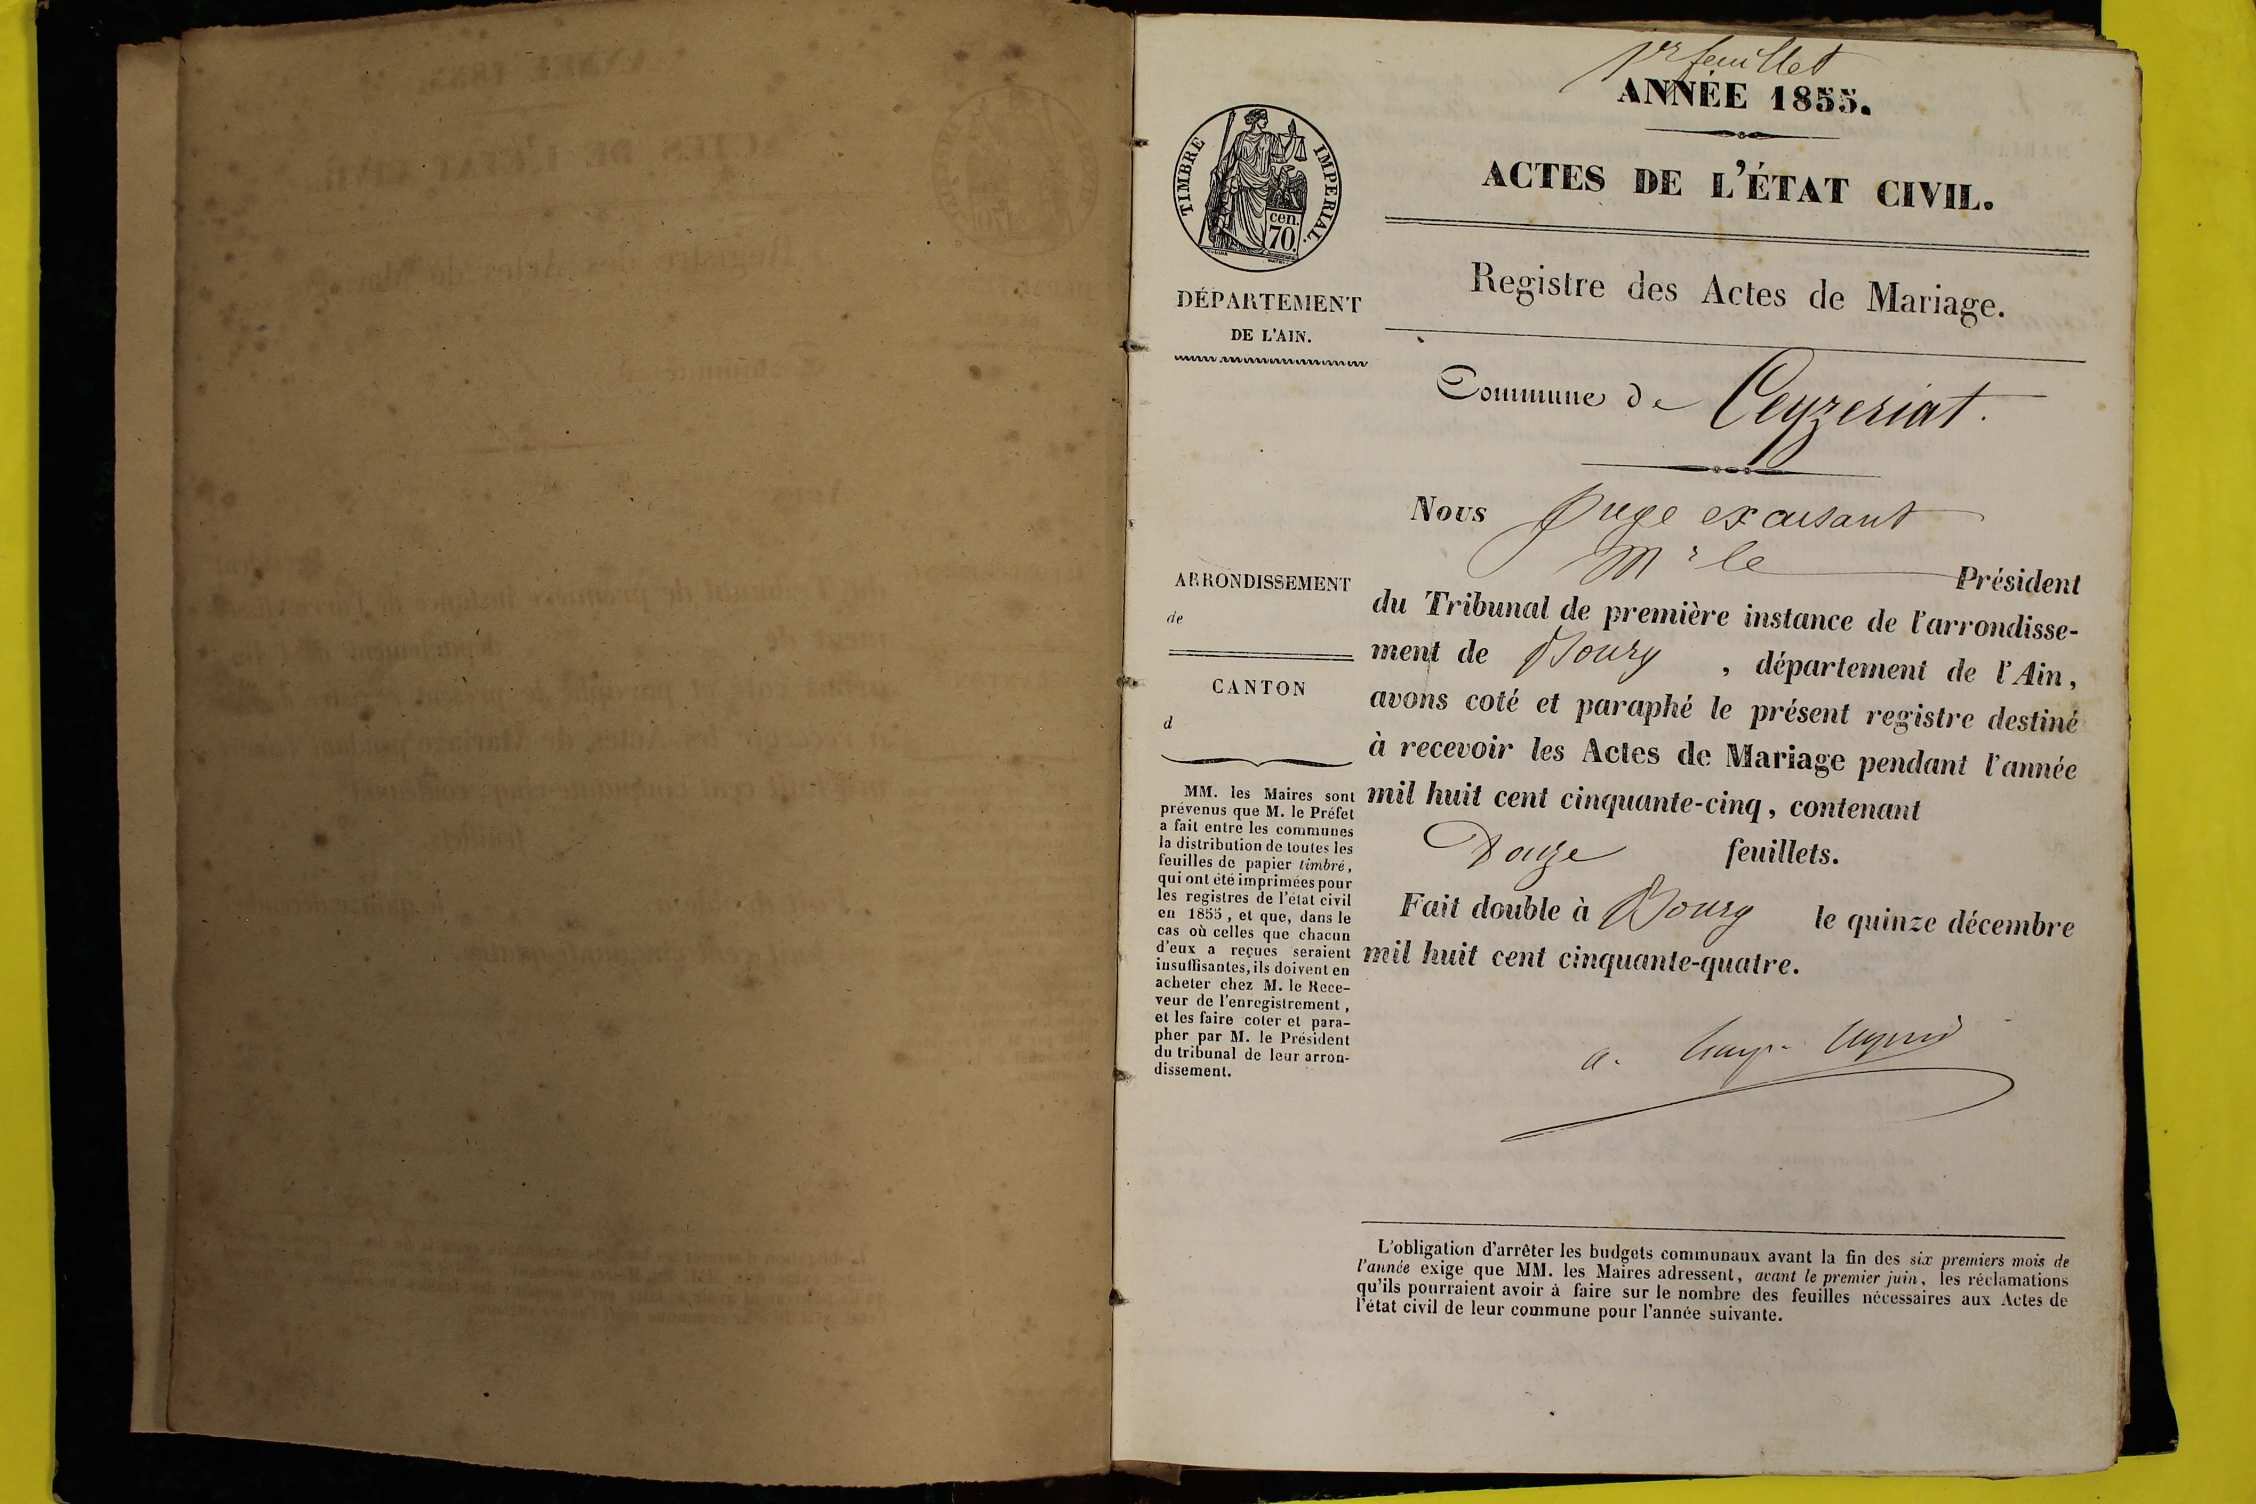 1er feuillet
ANNÉE 1855.
ACTES DE L'ÉTAT CIVIL.
Registre des Actes de Mariage.
TIMBRE IMPERIAL.
cen.
70.
DÉPARTEMENT
DE L'AIN.
Commune de Ceyzeriat.
Nous Juge excusant
Mr le Président
du Tribunal de première instance de l'arrondisse-
ment de Bourg, département de l'Ain,
avons coté et paraphé le présent registre destiné
à recevoir les Actes de Mariage pendant l'année
mil huit cent cinquante-cinq, contenant
Douze feuillets.
Fait double à Bourg le quinze décembre
mil huit cent cinquante-quatre.
ARRONDISSEMENT
de
CANTON
d
MM. les Maires sont
prévenus que M. le Préfet
a fait entre les communes
la distribution de toutes les
feuilles de papier timbré,
qui ont été imprimées pour
les registres de l'état civil
en 1855, et que, dans le
cas où celles que chacun
d'eux a reçues seraient
insuffisantes, ils doivent en
acheter chez M. le Rece-
veur de l'enregistrement,
et les faire coter et para-
pher par M. le Président
du tribunal de leur arron-
dissement.
L'obligation d'arrêter les budgets communaux avant la fin des six premiers mois de
l'année exige que MM. les Maires adressent, avant le premier juin, les réclamations
qu'ils pourraient avoir à faire sur le nombre des feuilles nécessaires aux Actes de
l'état civil de leur commune pour l'année suivante.